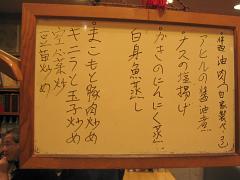 油肉(自家製
アヒルの醤油煮
ナスの塩揚げ
かきのにんにく蒸し
白身魚蒸し
まこもと豚肉炒め
キニラと玉子炒め
空心菜炒め
豆苗炒め